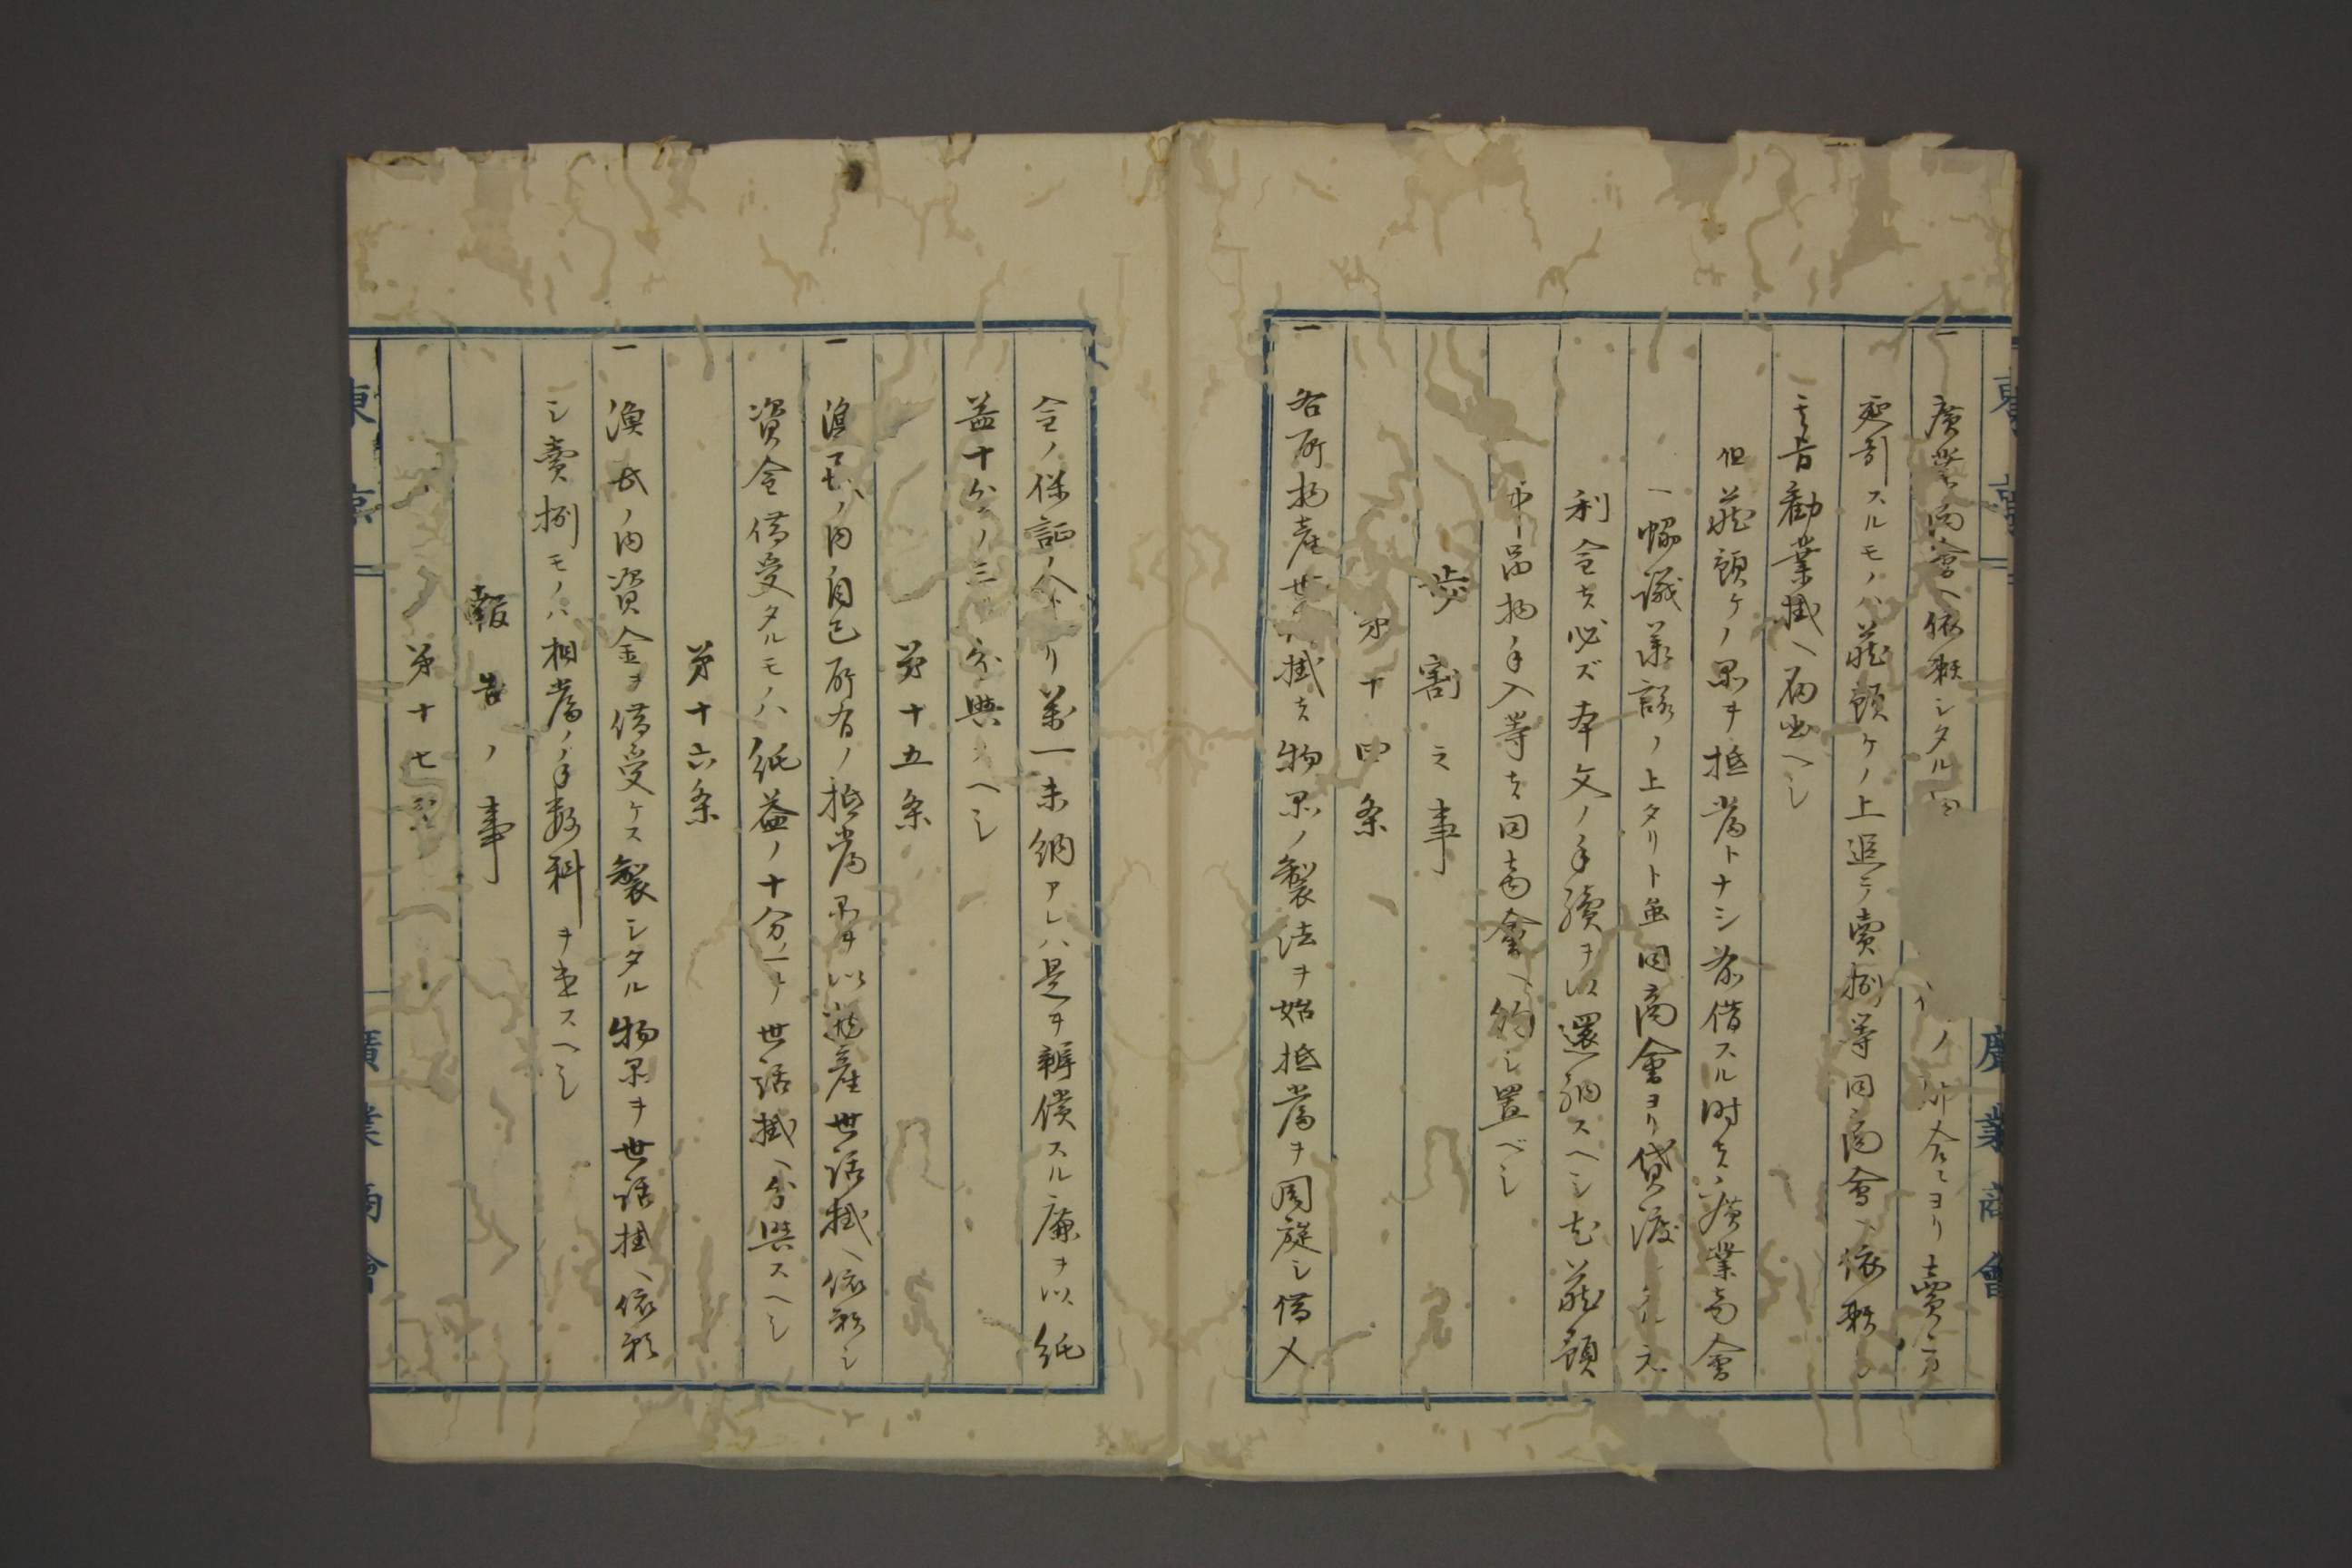 東京 廣業商會
一 廣業商會ヘ依頼シタル ノ 都合ニヨリ賣方
延引スルモノハ荷預ケノ上追テ賣捌等同商會ヘ依頼
其旨勧業掛ヘ届出ヘシ
但荷預ケノ品ヲ抵当トナシ 借スル時ハ廣業商會
ノ上タリト 同商會ヨリ貸渡 タル元
利金ハ必ズ本文ノ手續ヲ以還納スヘシ尤荷預
中品物ノ手入等ハ同商會ヘ約シ置ベシ
歩割之事
第十四条
一 各所物産世話掛ハ物品ノ製法ヲ始抵当ヲ周旋シ借入
金ノ保証 万一未納アレハ是ヲ辨償スル廉ヲ以純
益十分ノ三 分與スヘシ
第十五条
一 漁民ノ内自己所有ノ抵当品ヲ以物産世話掛ヘ依頼シ
資金借受タルモノハ純益ノ十分ノ一ヲ世話掛ヘ分與スヘシ
第十六条
一 漁民ノ内資金ヲ借受ケス製シタル物品ヲ世話掛ヘ依頼
シ賣捌モノハ相当ノ手数料ヲ出スヘシ
報告ノ事
第十七条
東京 廣業商會